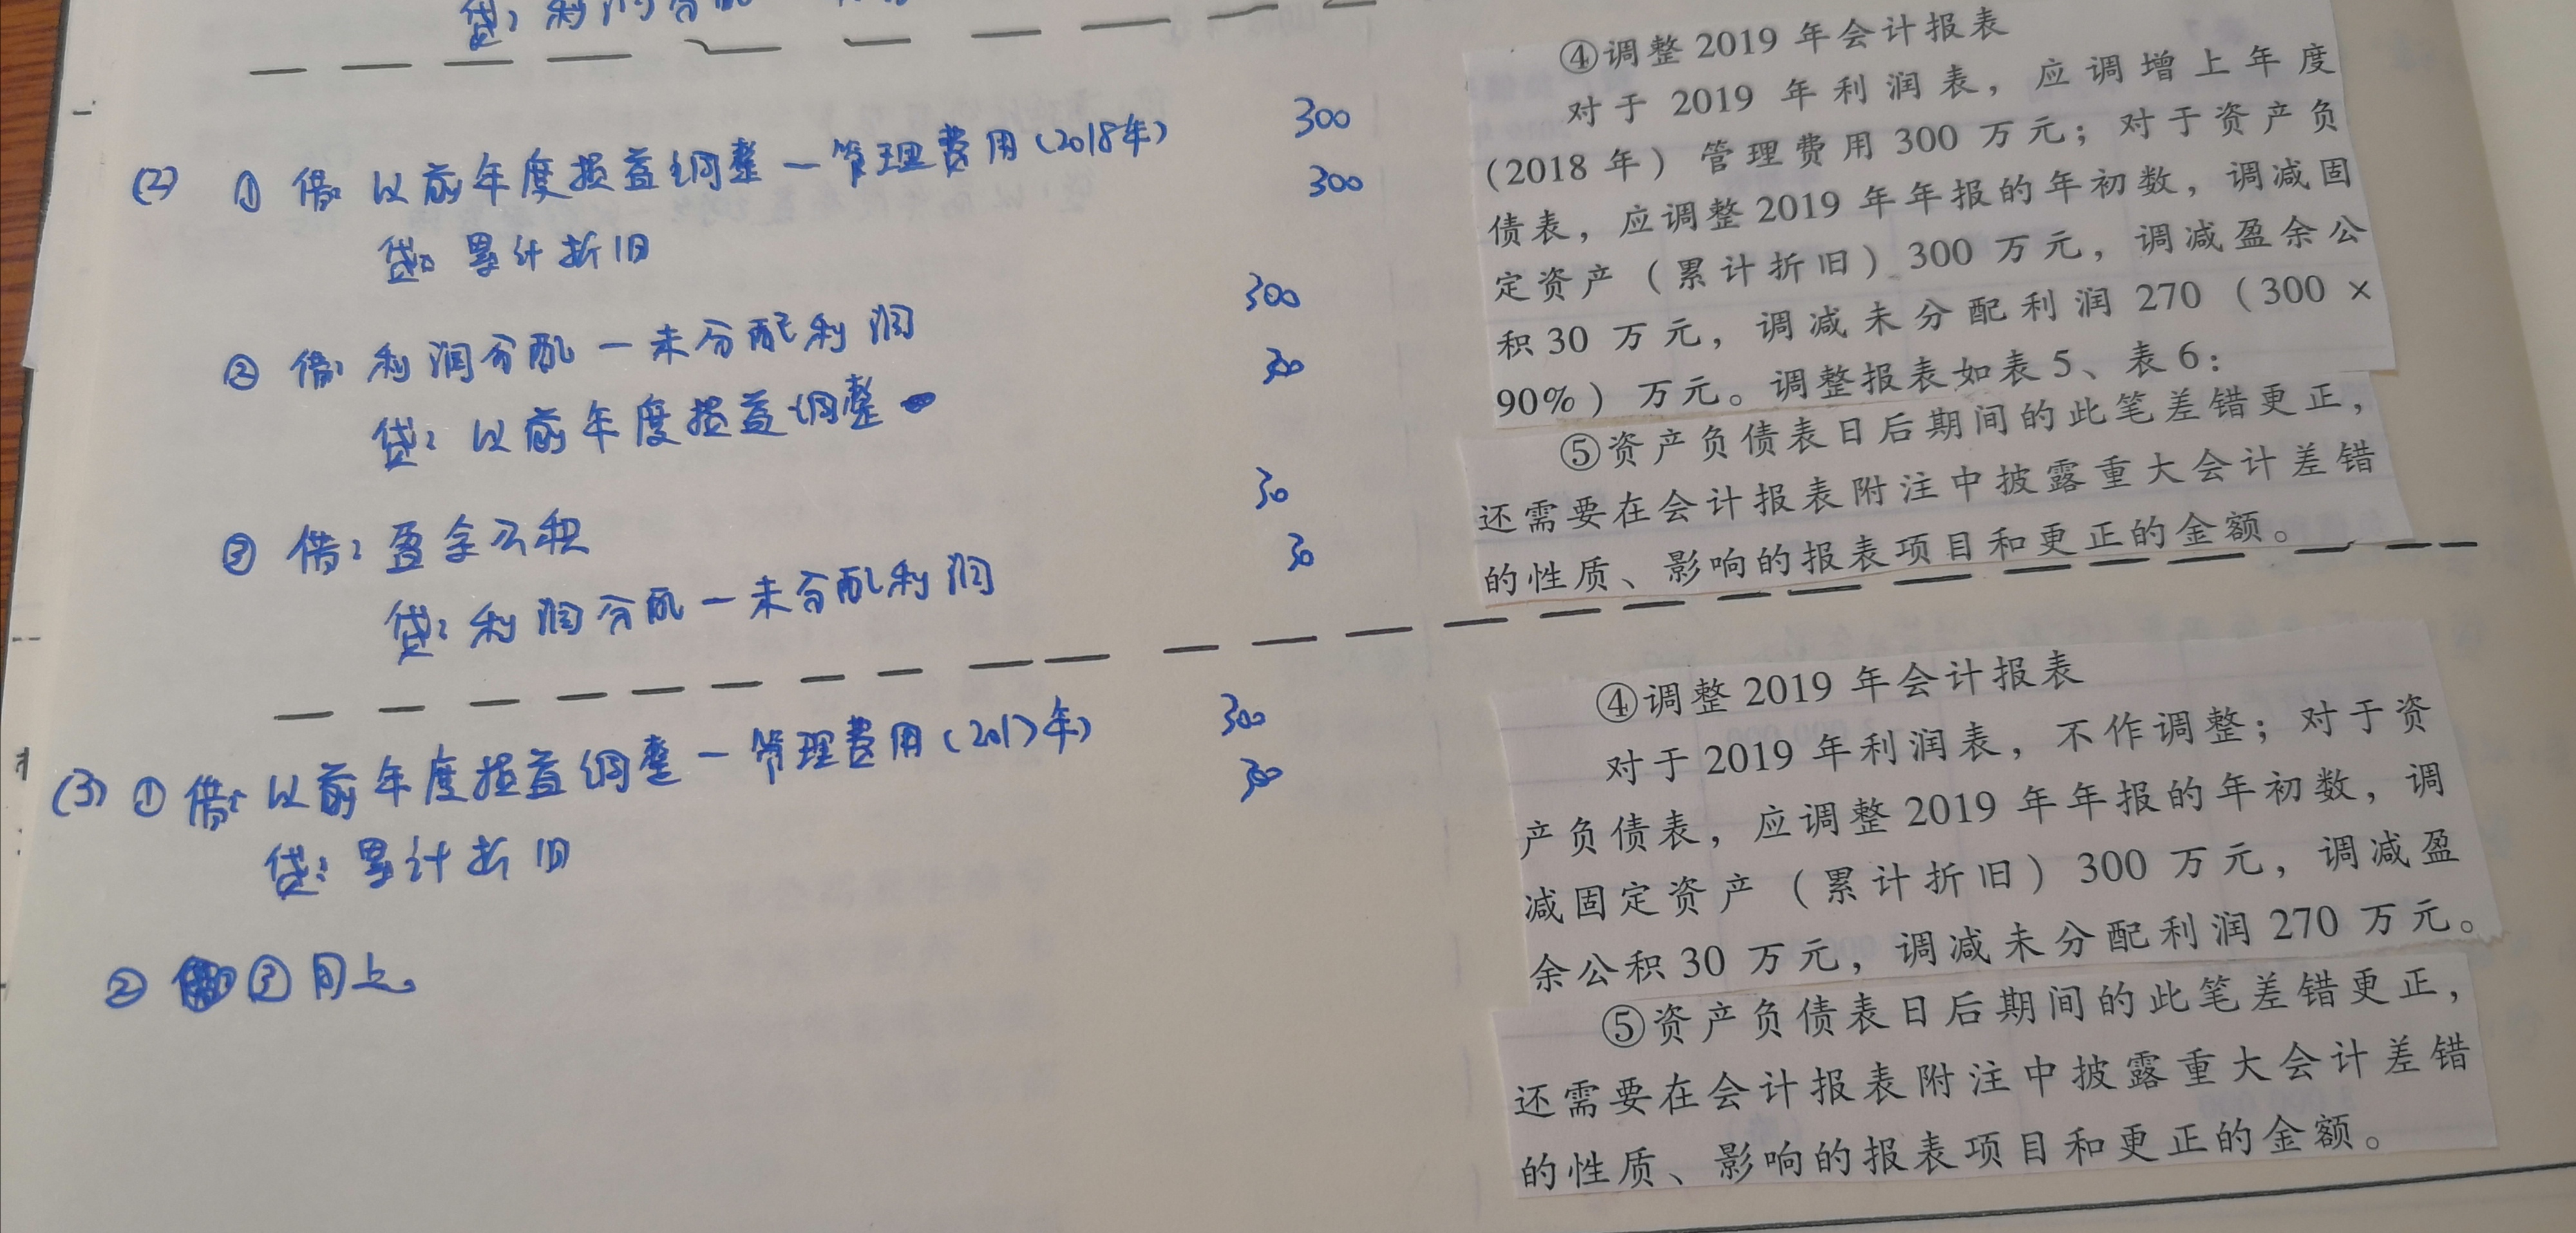 贷：利润分配
(2) ① 借：以前年度损益调整—管理费用(2018年) 300
贷：累计折旧 300
② 借：利润分配—未分配利润 300
贷：以前年度损益调整 300
③ 借：盈余公积 30
贷：利润分配—未分配利润 30
④调整 2019 年会计报表
对于 2019 年利润表，应调增上年度
（2018 年）管理费用 300 万元；对于资产负
债表，应调整 2019 年年报的年初数，调减固
定资产（累计折旧）300 万元，调减盈余公
积 30 万元，调减未分配利润 270（300 ×
90%）万元。调整报表如表 5、表 6：
⑤资产负债表日后期间的此笔差错更正，
还需要在会计报表附注中披露重大会计差错
的性质、影响的报表项目和更正的金额。
(3) ① 借：以前年度损益调整—管理费用(2017年) 300
贷：累计折旧 300
② ③ 同上。
④调整 2019 年会计报表
对于 2019 年利润表，不作调整；对于资
产负债表，应调整 2019 年年报的年初数，调
减固定资产（累计折旧）300 万元，调减盈
余公积 30 万元，调减未分配利润 270 万元。
⑤资产负债表日后期间的此笔差错更正，
还需要在会计报表附注中披露重大会计差错
的性质、影响的报表项目和更正的金额。